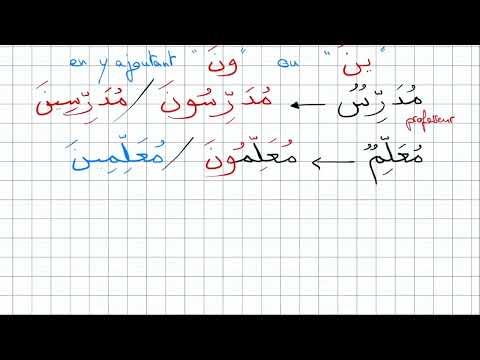 en y ajoutant "ونَ" ou "ينَ"
مُدَرِّسٌ ← مُدَرِّسُونَ / مُدَرِّسِينَ
professeur
مُعَلِّمٌ ← مُعَلِّمُونَ / مُعَلِّمِينَ